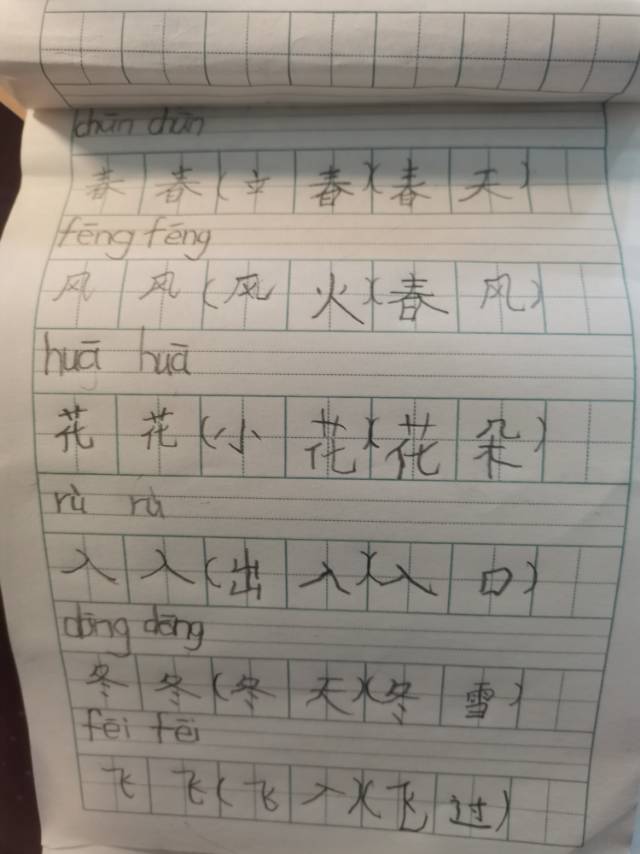 chūn chūn
春 春 (立 春)(春 天)
fēng fēng
风 风 (风 火)(春 风)
huā huā
花 花 (小 花)(花 朵)
rù rù
入 入 (出 入)(入 口)
dōng dōng
冬 冬 (冬 天)(冬 雪)
fēi fēi
飞 飞 (飞 入)(飞 过)